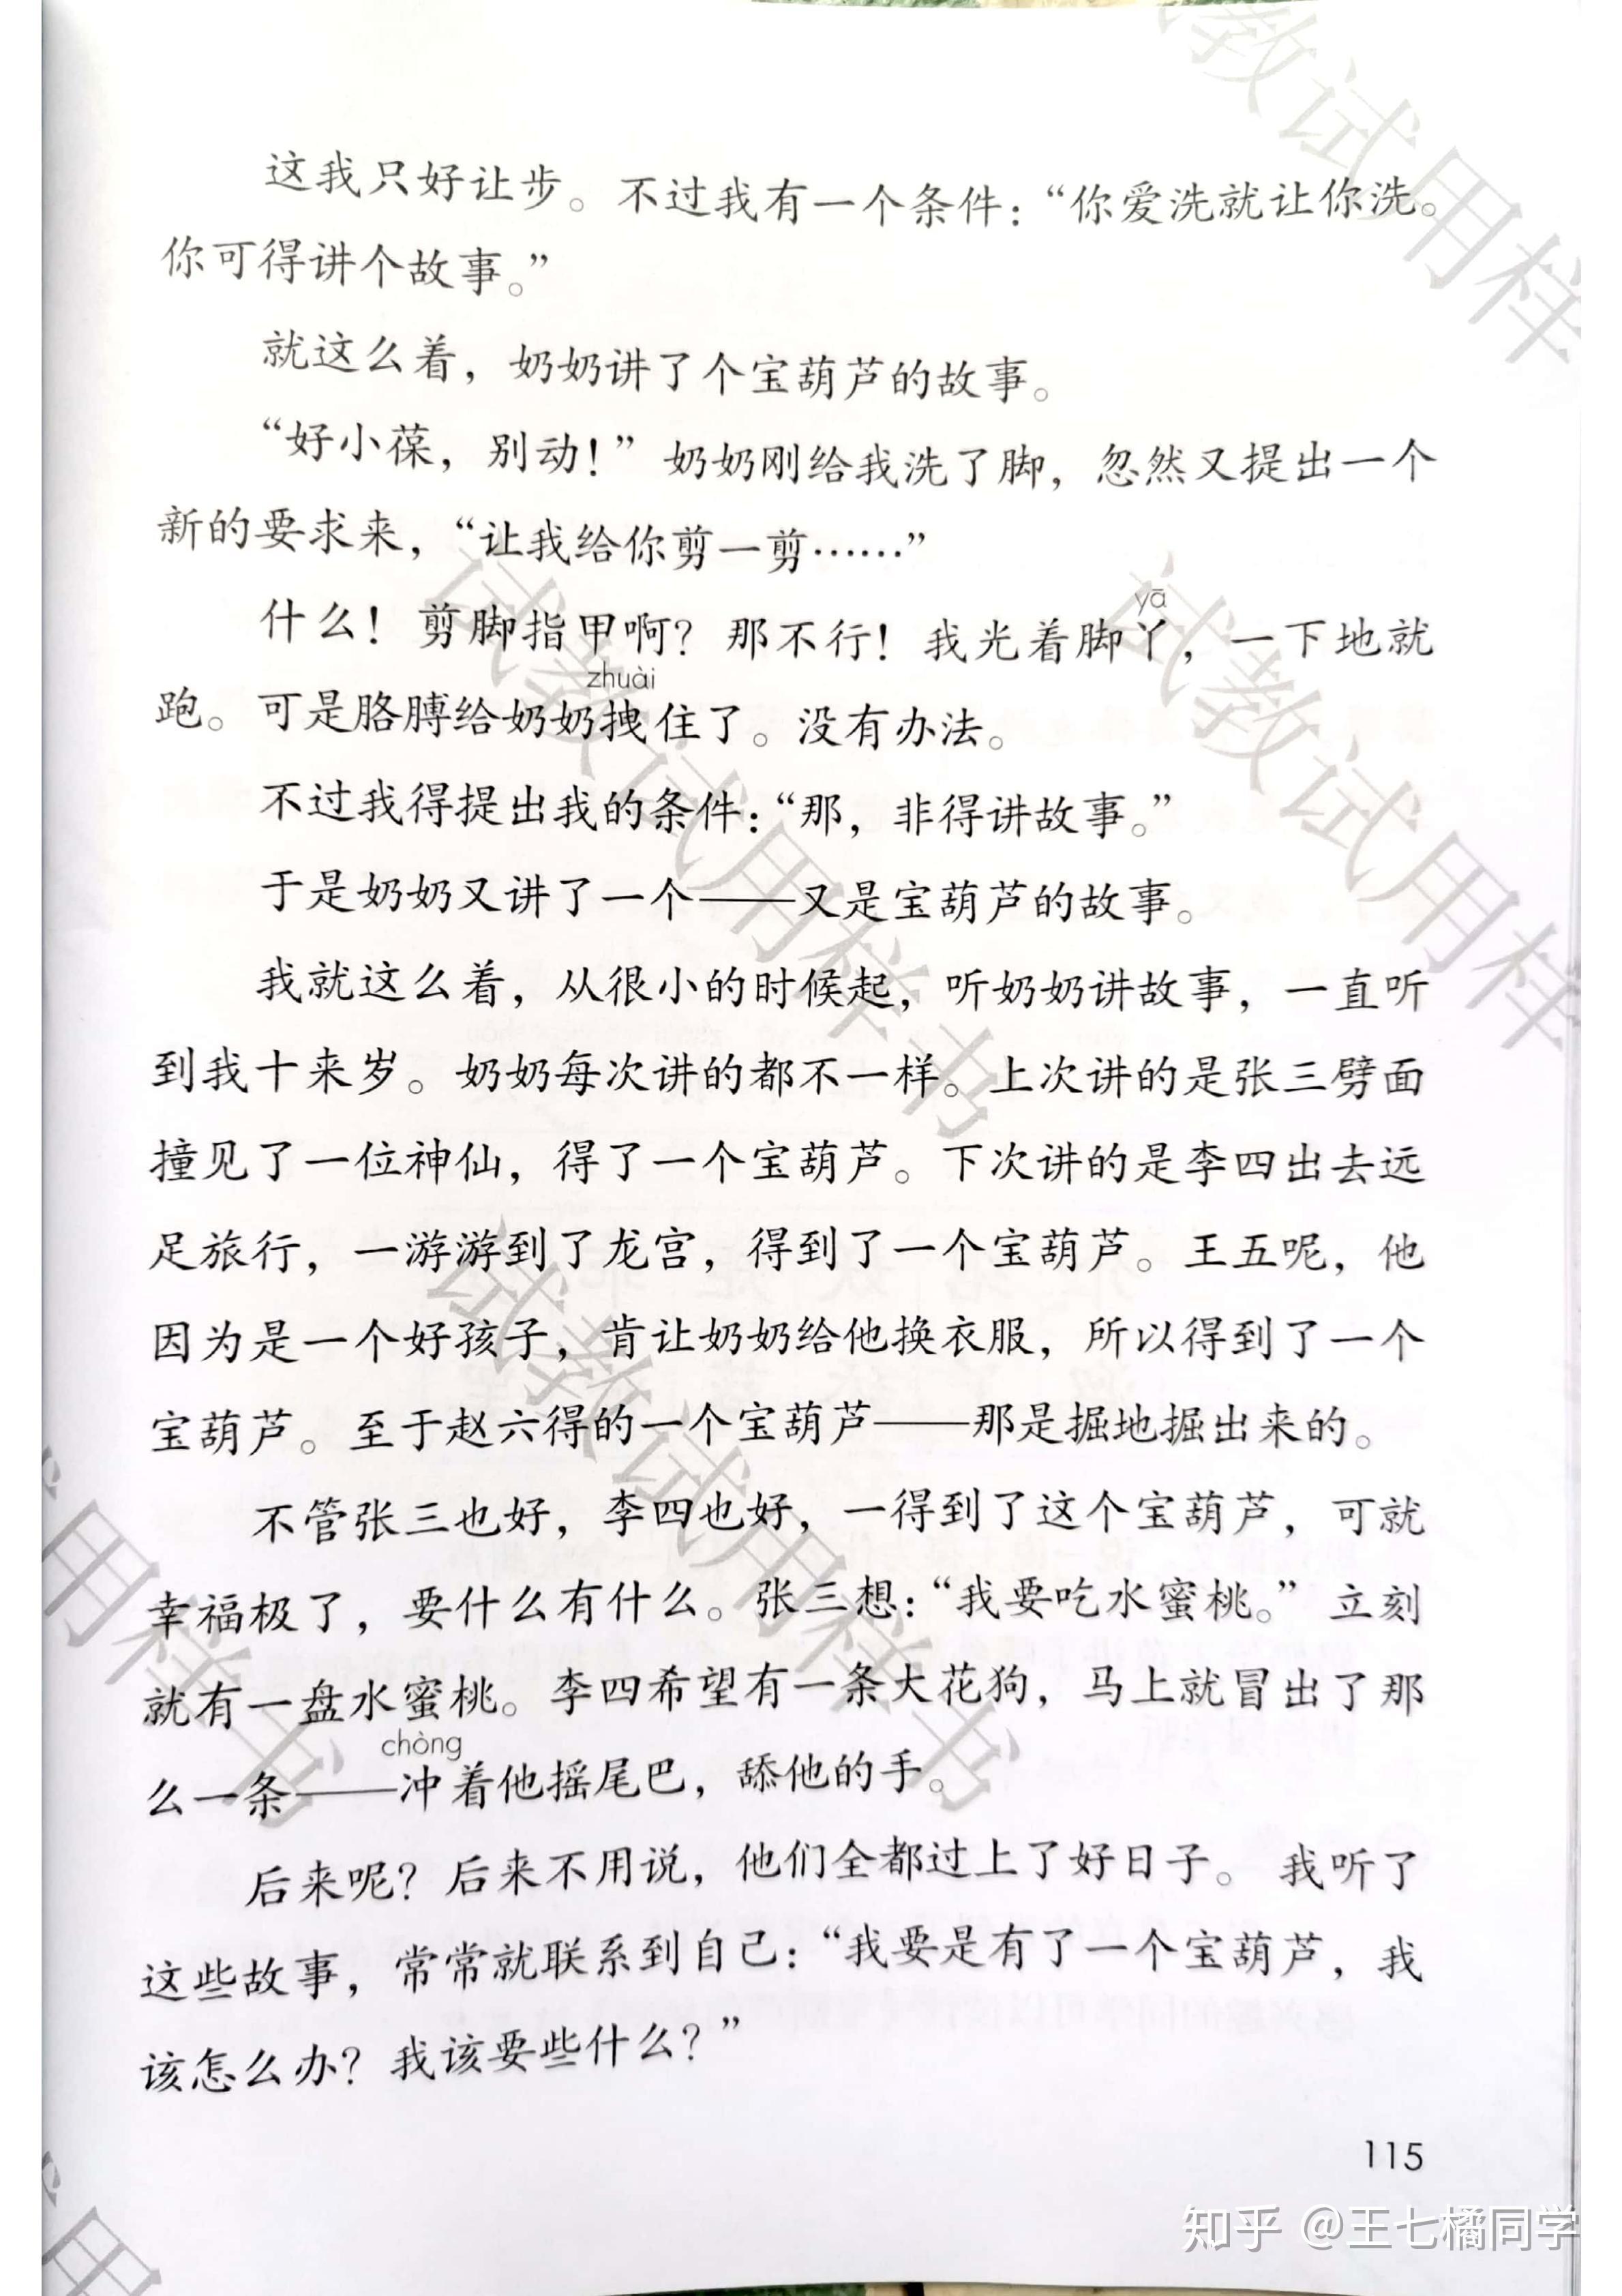 这我只好让步。不过我有一个条件：“你爱洗就让你洗。
你可得讲个故事。”
就这么着，奶奶讲了个宝葫芦的故事。
“好小葆，别动！”奶奶刚给我洗了脚，忽然又提出一个
新的要求来，“让我给你剪一剪……”
yā
什么！剪脚指甲啊？那不行！我光着脚丫，一下地就
zhuài
跑。可是胳膊给奶奶拽住了。没有办法。
不过我得提出我的条件：“那，非得讲故事。”
于是奶奶又讲了一个——又是宝葫芦的故事。
我就这么着，从很小的时候起，听奶奶讲故事，一直听
到我十来岁。奶奶每次讲的都不一样。上次讲的是张三劈面
撞见了一位神仙，得了一个宝葫芦。下次讲的是李四出去远
足旅行，一游游到了龙宫，得到了一个宝葫芦。王五呢，他
因为是一个好孩子，肯让奶奶给他换衣服，所以得到了一个
宝葫芦。至于赵六得的一个宝葫芦——那是掘地掘出来的。
不管张三也好，李四也好，一得到了这个宝葫芦，可就
幸福极了，要什么有什么。张三想：“我要吃水蜜桃。”立刻
就有一盘水蜜桃。李四希望有一条大花狗，马上就冒出了那
chòng
么一条——冲着他摇尾巴，舔他的手。
后来呢？后来不用说，他们全都过上了好日子。我听了
这些故事，常常就联系到自己：“我要是有了一个宝葫芦，我
该怎么办？我该要些什么？”
115
知乎 @王七橘同学
试教试用样
试教试用样书
试教试用样
试教试用样书
用样书